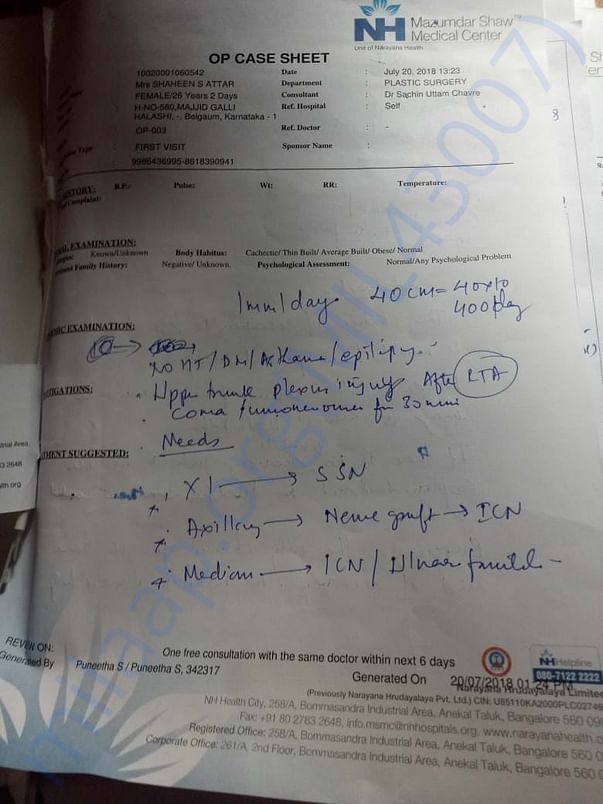 NH Mazumdar Shaw™
Medical Center
Unit of Narayana Health
OP CASE SHEET
10020001060542 Date : July 20, 2018 13:23
Mrs SHAHEEN S ATTAR Department : PLASTIC SURGERY
FEMALE/26 Years 2 Days Consultant : Dr Sachin Uttam Chavre
H-NO-580,MAJJID GALLI Ref. Hospital : Self
HALASHI, -, Belgaum, Karnataka - 1
OP-003 Ref. Doctor : -
Type : FIRST VISIT Sponsor Name :
9986436995-8618390941
HISTORY: B.P.: Pulse: Wt: RR: Temperature:
Complaint:
EXAMINATION:
Known/Unknown Body Habitus: Cachectic/ Thin Built/ Average Built/ Obese/ Normal
Family History: Negative/ Unknown. Psychological Assessment: Normal/Any Psychological Problem
1mm/day 40cm = 40x10
400day
EXAMINATION:
No HT/DM/Asthama/epilipsy
Upper trunk plexus injury After RTA
coma for 30 min
Needs
SUGGESTED:
XI → SSN
Axillary → Nerve graft → ICN
Median → ICN / Ulnar
REVIEW ON:
One free consultation with the same doctor within next 6 days
Generated By Puneetha S / Puneetha S, 342317
Generated On 20/07/2018 01:24 PM
NH Helpline
080-7122 2222
Narayana Hrudayalaya Limited
(Previously Narayana Hrudayalaya Pvt. Ltd.) CIN: U85110KA2000PLC02749
NH Health City, 258/A, Bommasandra Industrial Area, Anekal Taluk, Bangalore 560 09
Fax: +91 80 2783 2648, info.msmc@nhhospitals.org, www.narayanahealth.o
Registered Office: 258/A, Bommasandra Industrial Area, Anekal Taluk, Bangalore 560 0
Corporate Office: 261/A, 2nd Floor, Bommasandra Industrial Area, Anekal Taluk, Bangalore 560 0